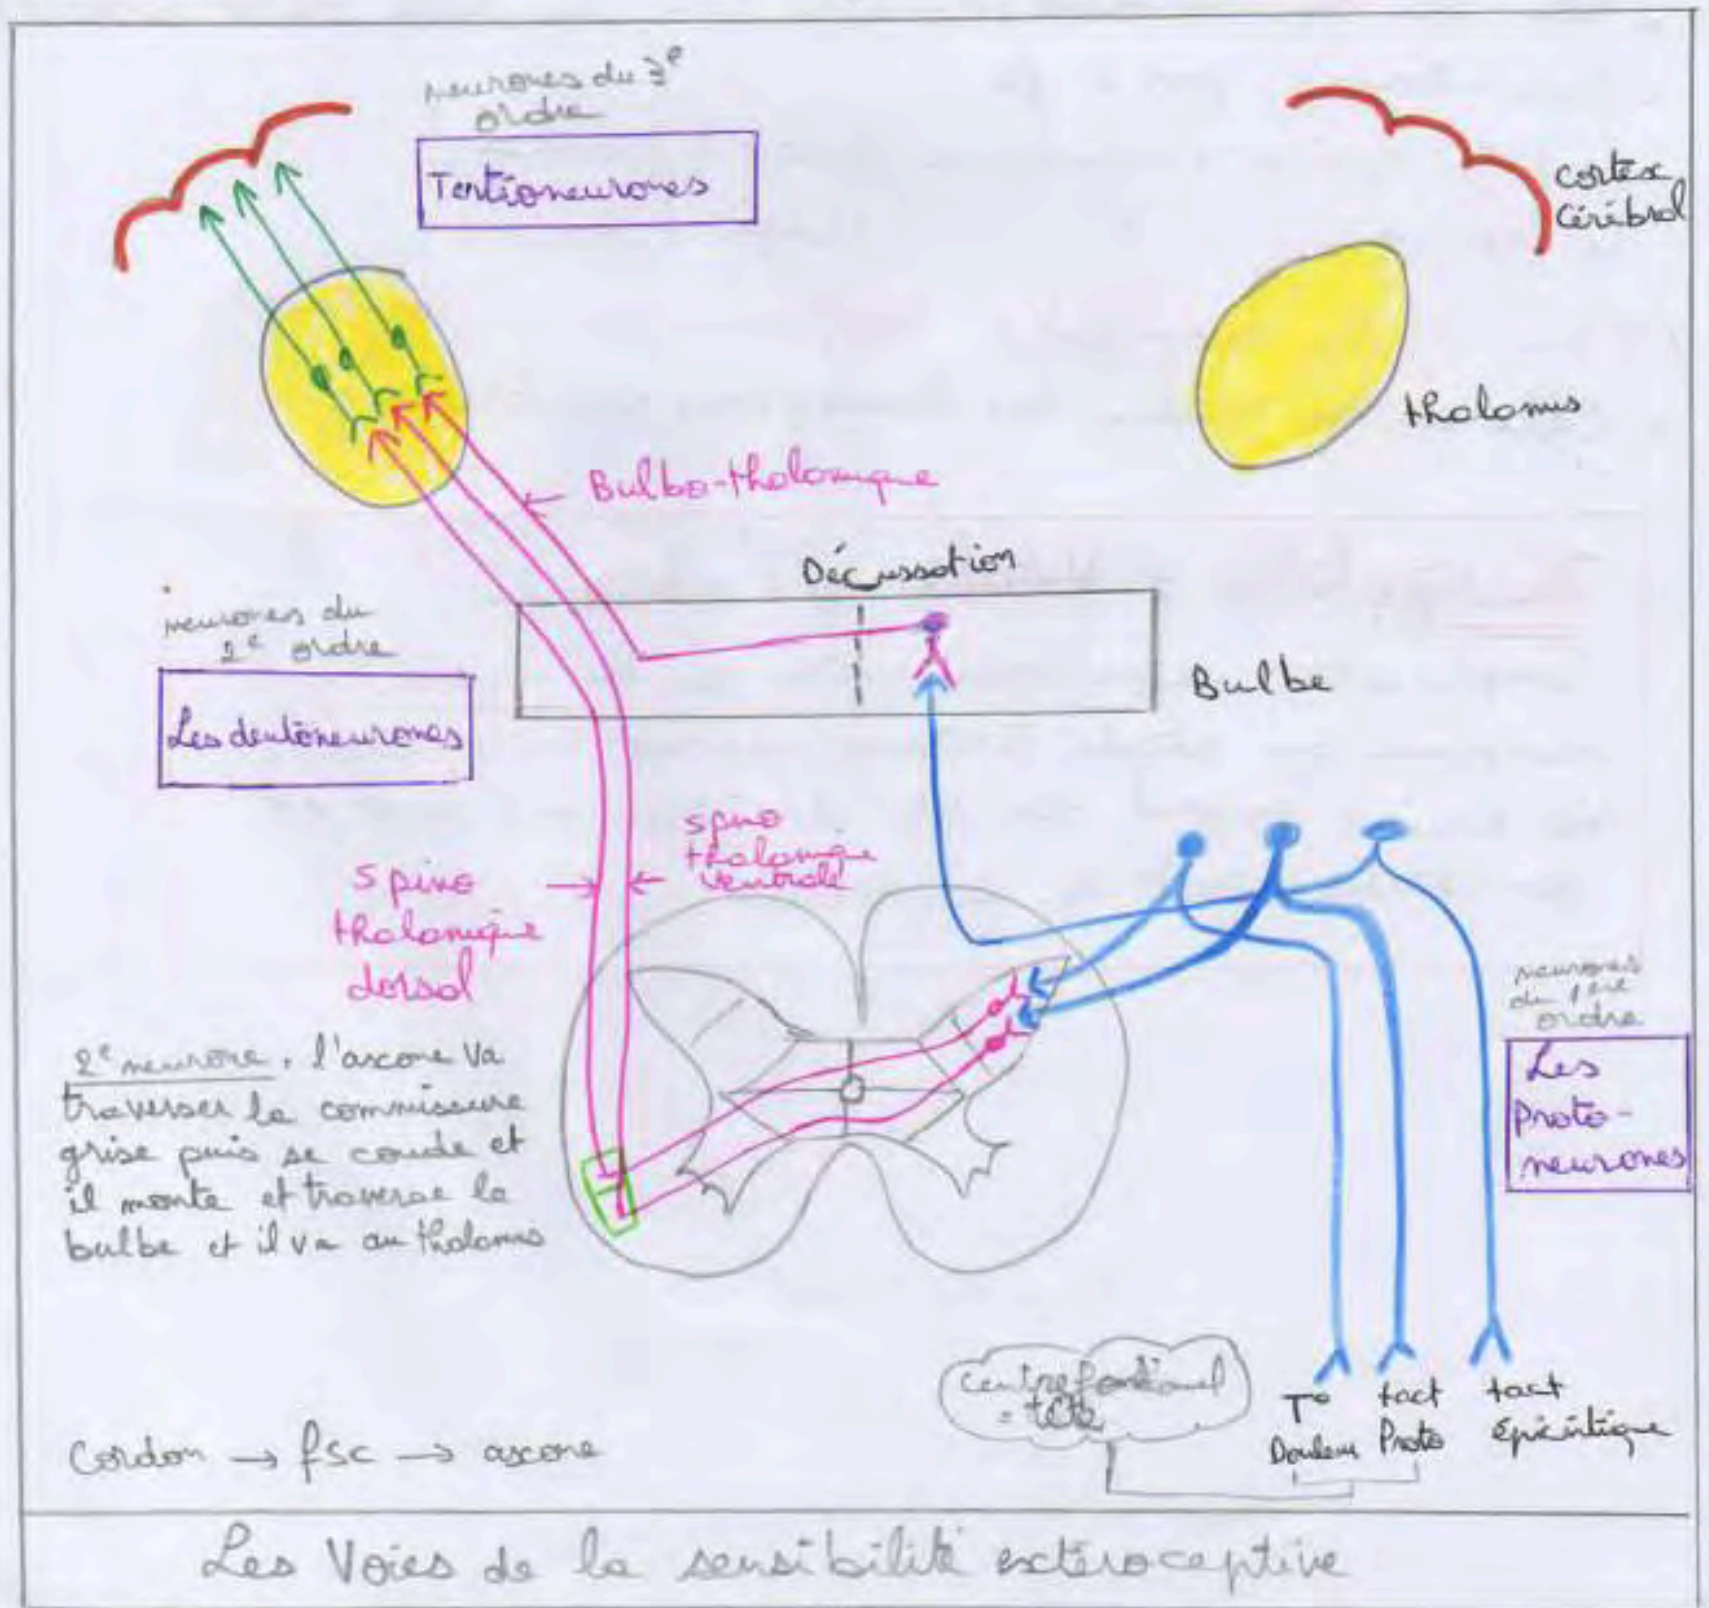 neurones du 3e
ordre
Tertioneurones
cortex
Cérébral
thalamus
Bulbo-thalamique
Décussation
neurones du
2e ordre
Les deutoneurones
Bulbe
spino
thalamique
ventrale
Spino
thalamique
dorsal
neurones
du 1ere
ordre
Les
Proto-
neurones
2e neurone, l'axone va
traverser la commissure
grise puis se coude et
il monte et traverse le
bulbe et il va au thalamus
centre fonctionnel
= tête
T°
Douleur
tact
Proto
tact
épicritique
Cordon → fsc → axone
Les Voies de la sensibilité extéroceptive